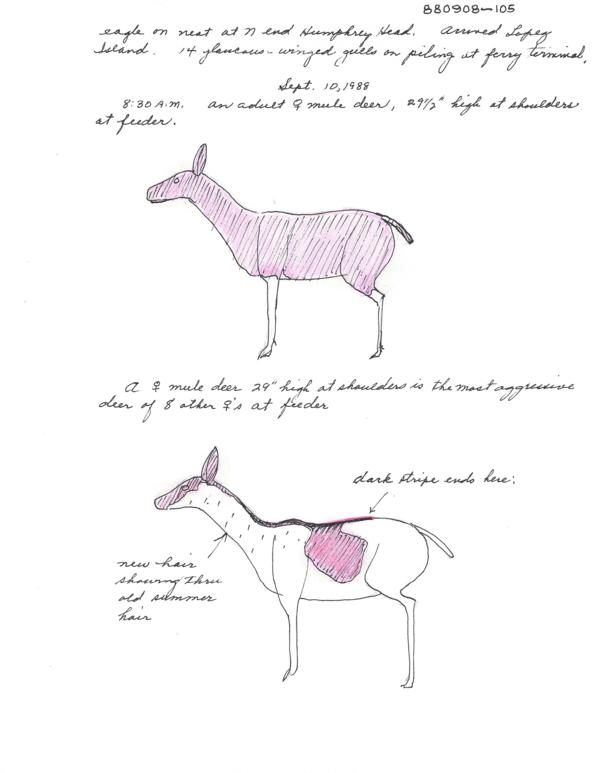 880908-105
eagle on nest at N end Humphrey Head. Arrived Lopez
Island. 14 glaucous-winged gulls on piling at ferry terminal.
Sept. 10, 1988
8:30 A.M. an adult ♀ mule deer, 29½" high at shoulders
at feeder.
A ♀ mule deer 29" high at shoulders is the most aggressive
deer of 8 other ♀'s at feeder
dark stripe ends here.
new hair
showing thru
old summer
hair